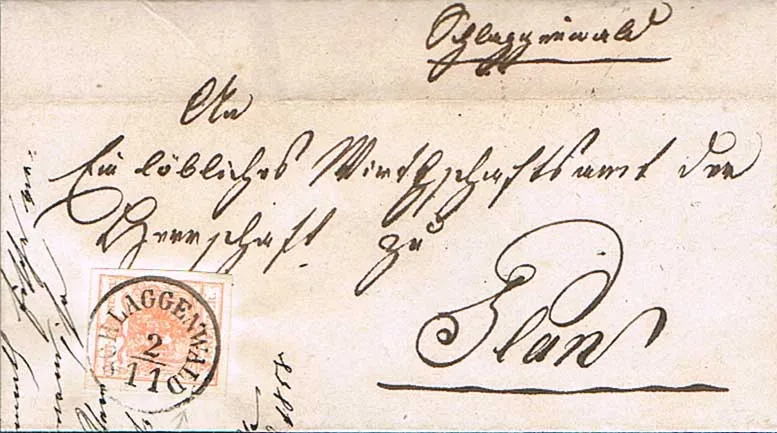 Schlaggenwald
An
Ein löbliches Wirthschaftsamt der
Herrschaft zu
Plan
SCHLAGGENWALD
2/11
1858